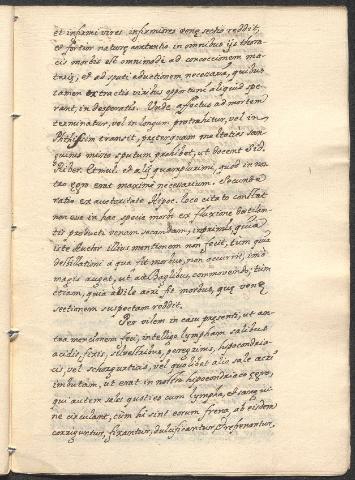 et infirmi vires infirmiores venę sectio reddit,
et fortior naturę contentio in omnibus ijs thora-
cis morbis est omnimodè ad concoctionem ma-
teriæ, et ad sputi eductionem necessaria, quibus
tamen extractis viribus opportuni aliquid spe-
rant, in desperatis. Unde affectus ad mortem
terminatur, vel in longum protrahitur, vel in
Phthisim transit, præterquam
quinis missio sputum prohibet, ut docent Sid.
River. Etmul. et alij quamplurimi, quod in nos-
tro ęgro erat maximè necessarium. Secunda
ratio ex auctoritate Hipoc. loco citato constat
non esse in hac specie morbi ex fluxione destilan-
tis producti venam secandam, imprimis, quia
iste Author illius mentionem non fecit, tum quia
destillationi à qua fit morbus, non occurrit, imò
magis auget, ut ait Baglivus, commovendo, tum
etiam, quia à bile acri fit morbus, quę venę
sectionem suspectam reddit.
Per bilem in casu præsenti, ut an-
tea mencionem feci, intelligo lympham salibus
acidis, fixis, peregrinis, hypocondria-
cis, vel schorbuticis, vel quolibet alio sale acri
imbutam, ut erat in nostro hypocondriaco ęgro,
qui autem sales quoties cum lympha, et sangui-
ne circulant, cùm hi sint eorum freno, ab eisdem
corriguntur, fixantur, dulcificantur, et refrenantur,